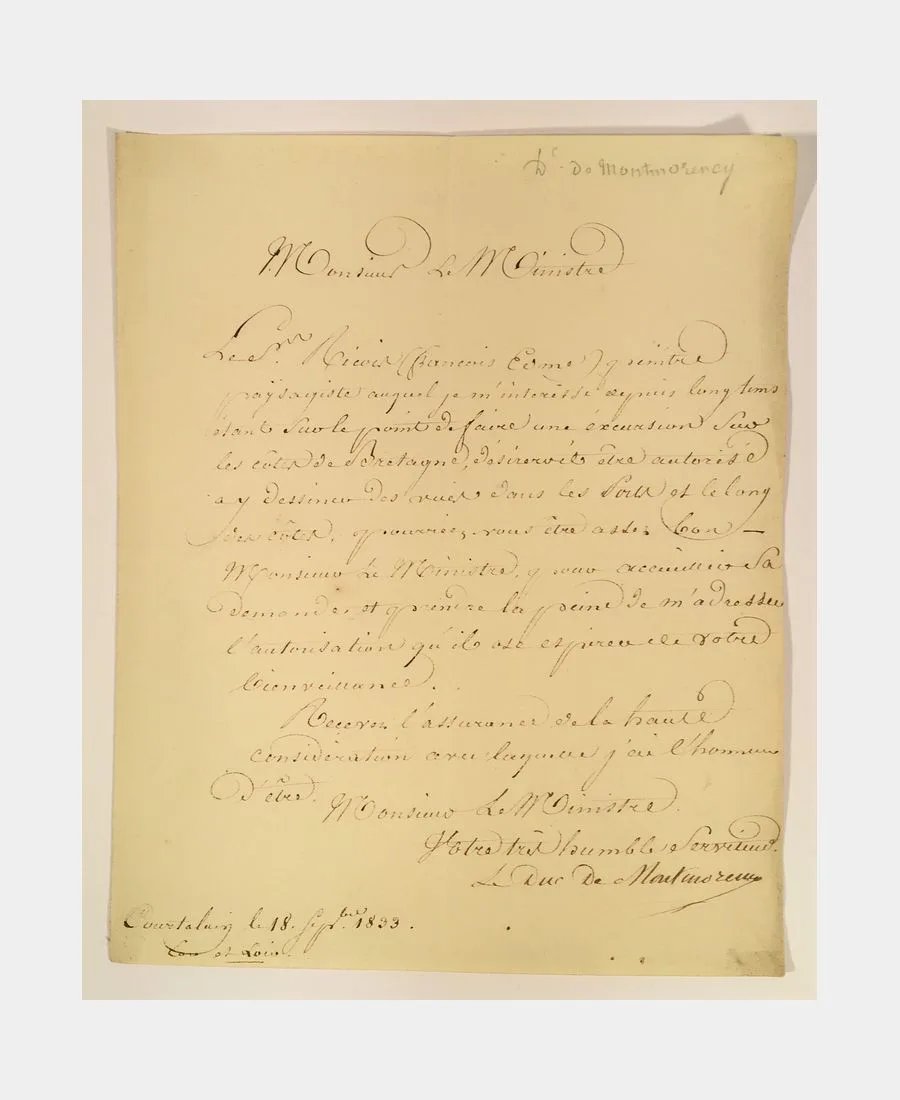 Dc. De Montmorency
Monsieur Le Ministre
Le Sr. Ricois (francois Eême) peintre
paÿsagiste auquel je m'intéresse depuis longtems
étant Sur le point de faire une éxcursion Sur
les côtes de Bretagne, désireroit être autorisé
a y dessiner des vues dans les Ports et le long
des côtes. pourriez vous être assez bon
Monsieur Le Ministre, pour accueillir Sa
demande, et prendre la peine de m'adresser
l'autorisation qu'il ose espérer de votre
bienveillance.
Recevez l'assurance de la haute
considération avec laquelle j'ai l'honneur
D'être.
Monsieur Le Ministre.
Votre très humble Serviteur.
Le Duc De Montmorency
Courtalain le 18. Sepbre. 1833.
Eure et Loir.